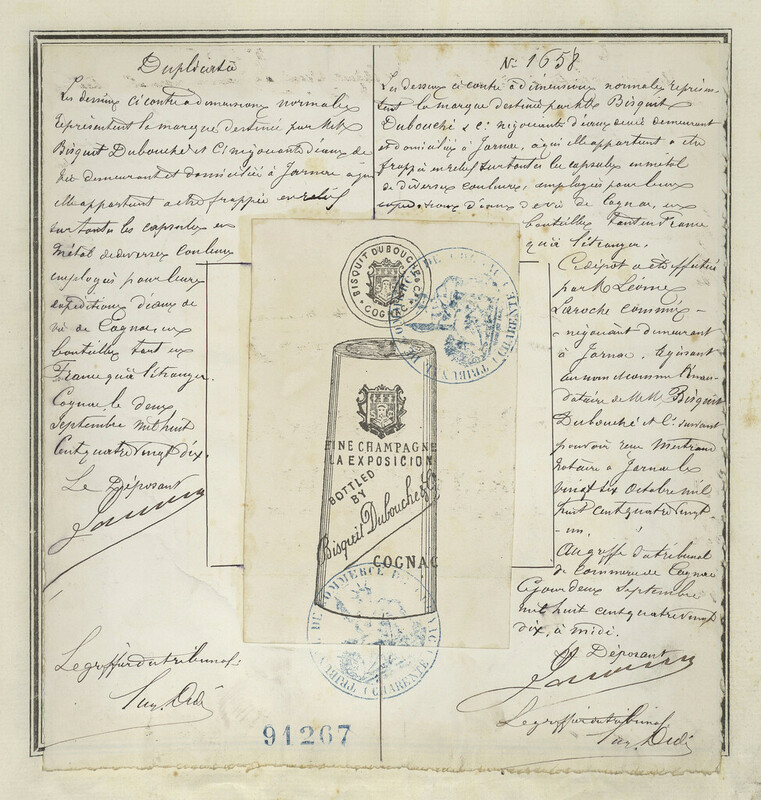 Duplicata
Les dessins ci contre a dimensions normales
représentent la marque destinée par M.M.
Bisquit Dubouché et Cie négociants d'eaux de
vie demeurant et domiciliés à Jarnac à qui
elle appartient a être frappée en relief
sur toutes les capsules en
métal de diverses couleurs
employés pour leurs
expéditions d'eaux de
vie de Cognac, en
bouteilles tant en
France qu'à l'étranger.
Cognac, le deux
Septembre mil huit
cent quatre vingt dix.
Le Déposant
Le greffier du tribunal
N. 1658
Les dessins ci contre a dimensions normales représen-
tent la marque destinée par MM. Bisquit
Dubouché & Cie négociants d'eaux de vie demeurant
et domiciliés à Jarnac, à qui elle appartient a être
frappé en relief sur toutes les capsules en métal
de diverses couleurs, employées pour leurs
expéditions d'eaux de vie de Cognac, en
bouteilles tant en France
qu'à l'étranger.
Ce dépôt a été effectué
par M. Léonce
Laroche commis-
négociant demeurant
à Jarnac, agissant
au nom et comme Man-
dataire de MM. Bisquit
Dubouché et Cie suivant
pouvoir reçu Mertrane
notaire à Jarnac le
vingt six Octobre mil
huit cent quatre vingt-
un.
Au greffe du tribunal
de Commerce de Cognac
ce jour deux Septembre
mil huit cent quatre vingt
dix, à midi.
Le Déposant
Le greffier du tribunal
BISQUIT DUBOUCHÉ & CO
COGNAC
FINE CHAMPAGNE
LA EXPOSICION
BOTTLED
BY
Bisquit Dubouché & Co
COGNAC
TRIBUNAL DE COMMERCE DE COGNAC (CHARENTE)
TRIBL DE COMMERCE DE COGNAC (CHARENTE)
91267